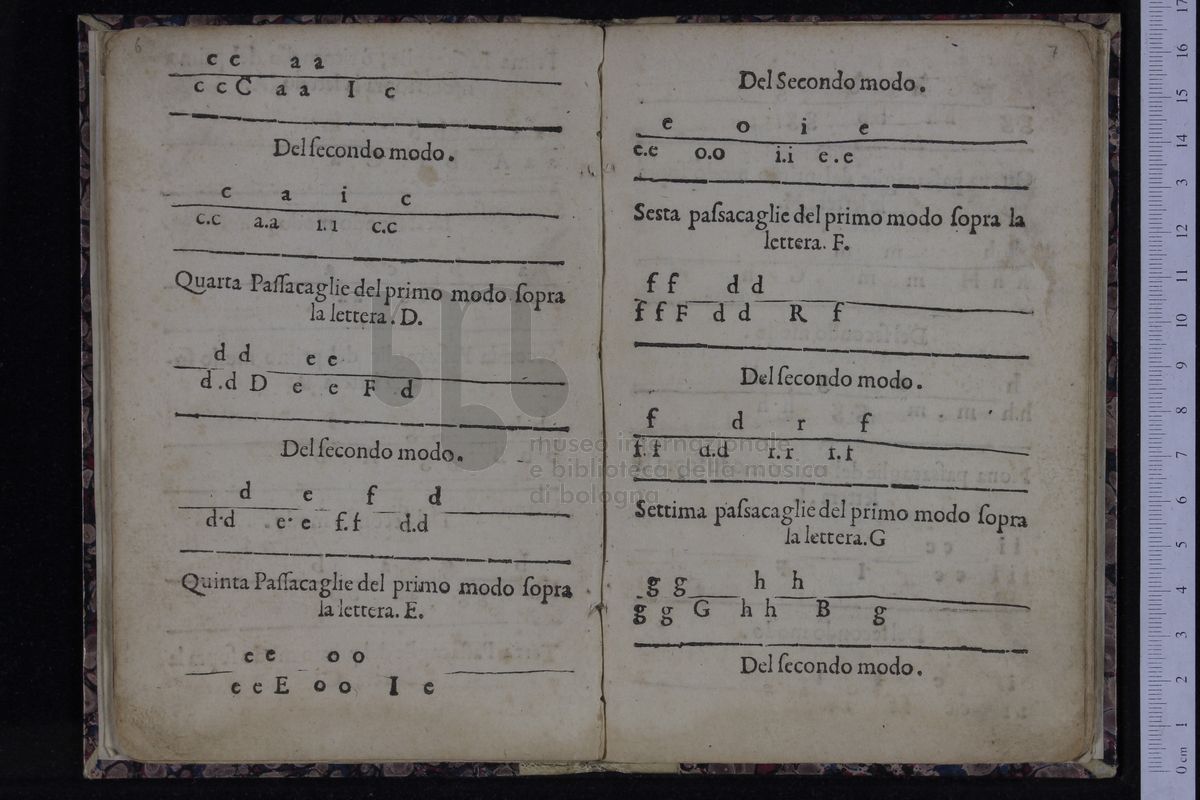 6
c c a a
c c C a a I c
Del ſecondo modo.
c a i c
c.c a.a i.i c.c
Quarta Paſſacaglie del primo modo ſopra
la lettera. D.
d d e e
d.d D e e F d
Del ſecondo modo.
d e f d
d.d e.e f.f d.d
Quinta Paſſacaglie del primo modo ſopra
la lettera. E.
e e o o
e e E o o I e
7
Del Secondo modo.
e o i e
e.e o.o i.i e.e
Sesta paſsacaglie del primo modo ſopra la
lettera. F.
f f d d
f f F d d R f
Del ſecondo modo.
f d r f
f.f d.d r.r f.f
Settima paſsacaglie del primo modo ſopra
la lettera. G
g g h h
g g G h h B g
Del ſecondo modo.
museo internazionale
e biblioteca della musica
di bologna
0 cm 1 2 3 4 5 6 7 8 9 10 11 12 13 14 15 16 17